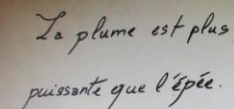 La plume est plus
puissante que l'épée.